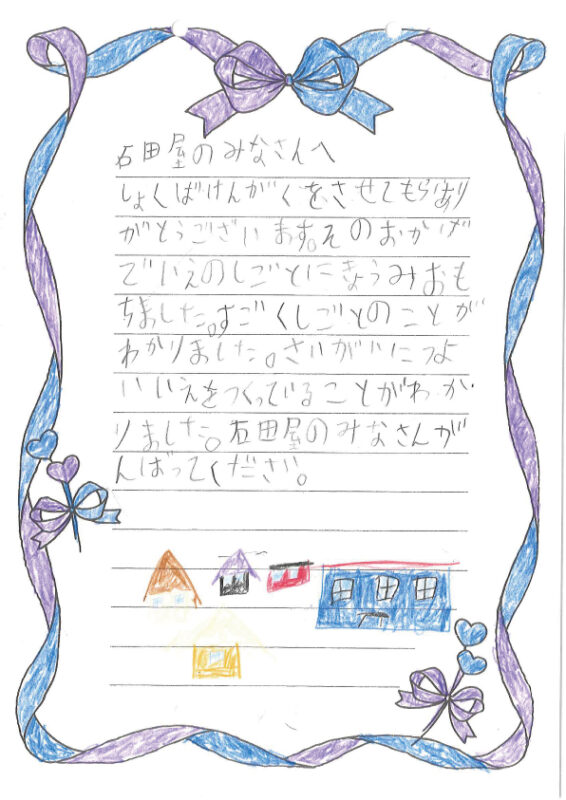 石田屋のみなさんへ
しょくばけんがくをさせてもらあり
がとうございます。そのおかげ
でいえのしごとにきょうみおも
ちました。すごくしごとのことが
わかりました。さいがいにつよ
いいえをつくっていることがわか
りました。石田屋のみなさんが
んばってください。